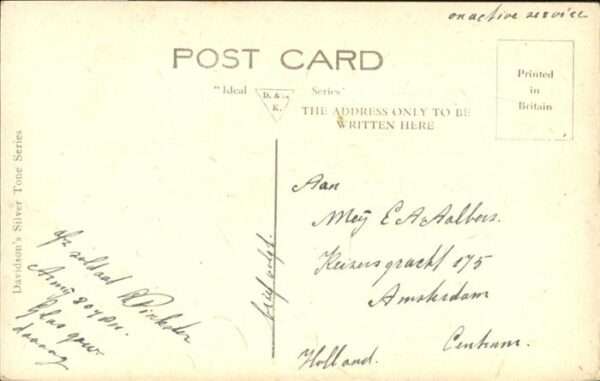 on active service
POST CARD
"Ideal D. & K. Series"
THE ADDRESS ONLY TO BE
WRITTEN HERE
Printed
in
Britain
Davidson's Silver Tone Series
Aan
Mej E A Aalbers.
Keizersgracht 175
Amsterdam
Centrum.
Holland.
afz soldaat
Army